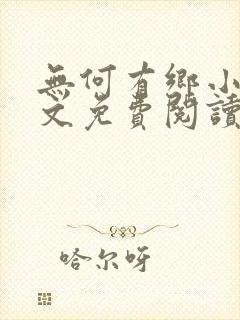 無何有鄉小
文免費閱讀
哈尔呀